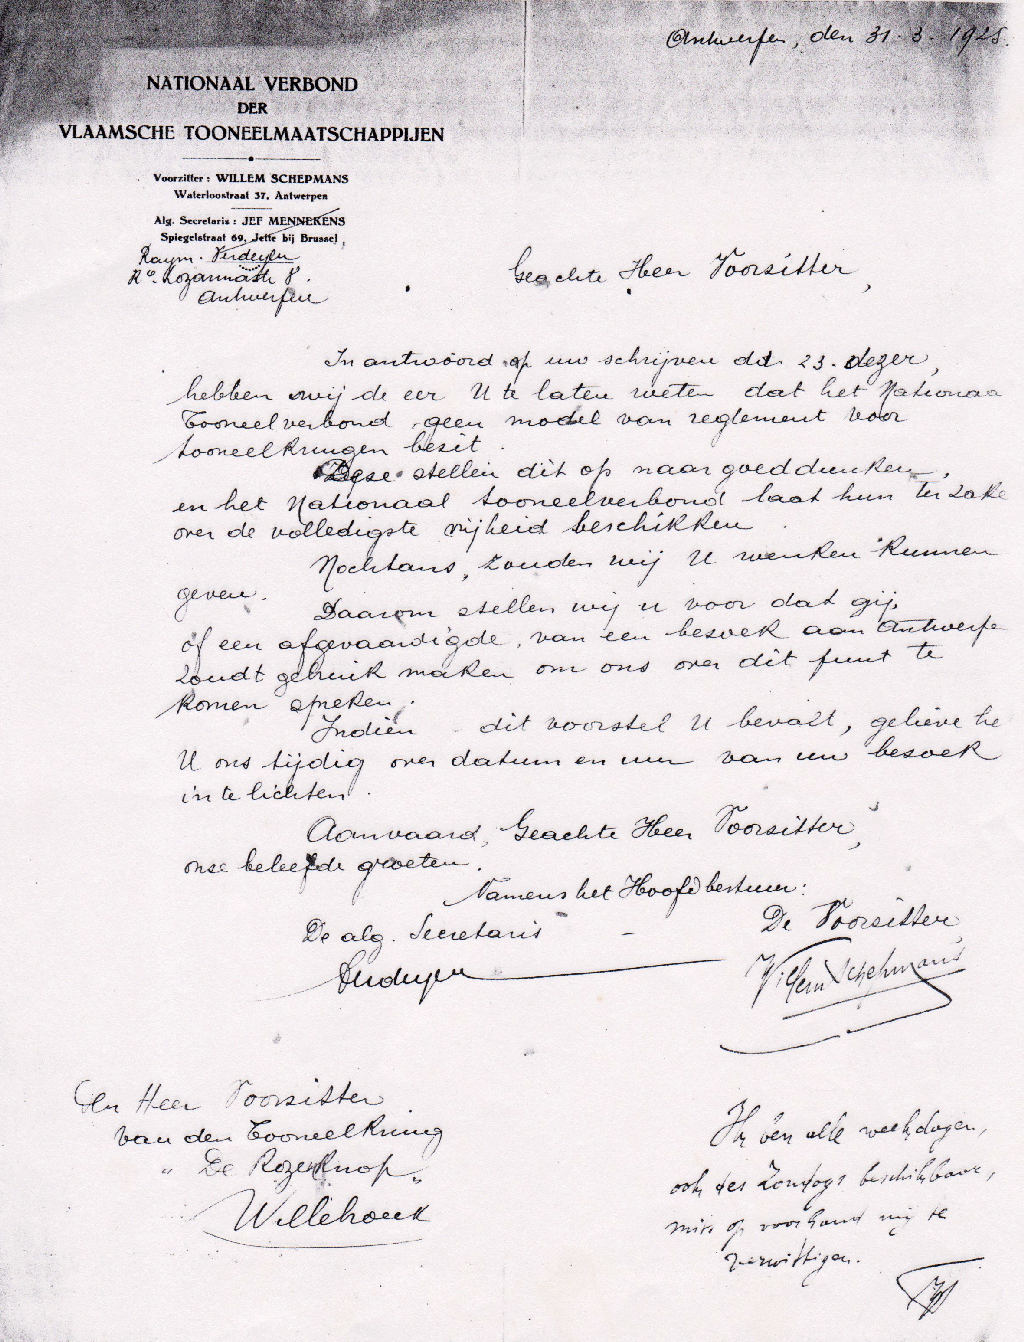 Antwerpen, den 31.3.1925.
NATIONAAL VERBOND
DER
VLAAMSCHE TOONEELMAATSCHAPPIJEN
Voorzitter : WILLEM SCHEPMANS
Waterloostraat 37, Antwerpen
Alg. Secretaris : JEF MENNEKENS
Spiegelstraat 69, Jette bij Brussel,
Raym. Verdeyen
Antwerpen
Geachte Heer Voorzitter,
In antwoord op uw schrijven dd. 23. dezer,
hebben wij de eer U te laten weten dat het Nationaa
Tooneelverbond geen model van reglement voor
tooneelkringen bezit.
Deze stellen dit op naar goeddunken,
en het Nationaal tooneelverbond laat hun ter zake
over de volledigste vrijheid beschikken.
Nochtans, zouden wij U wenken kunnen
geven.
Daarom stellen wij u voor dat gij,
of een afgevaardigde, van een bezoek aan Antwerpe
zoudt gebruik maken om ons over dit punt te
komen spreken.
Indien dit voorstel U bevalt, gelieve
U ons tijdig over datum en uur van uw bezoek
in te lichten.
Aanvaard, Geachte Heer Voorzitter,
onze beleefde groeten.
Namens het Hoofdbestuur:
De alg. Secretaris
De Voorzitter,
Verdeyen
Willem Schepmans
Den Heer Voorzitter
van den Tooneelkring
" De Rozenknop "
Willebroeck
Ik ben alle weekdagen,
ook des Zondags beschikbaar,
mits op voorhand mij te
verwittigen.